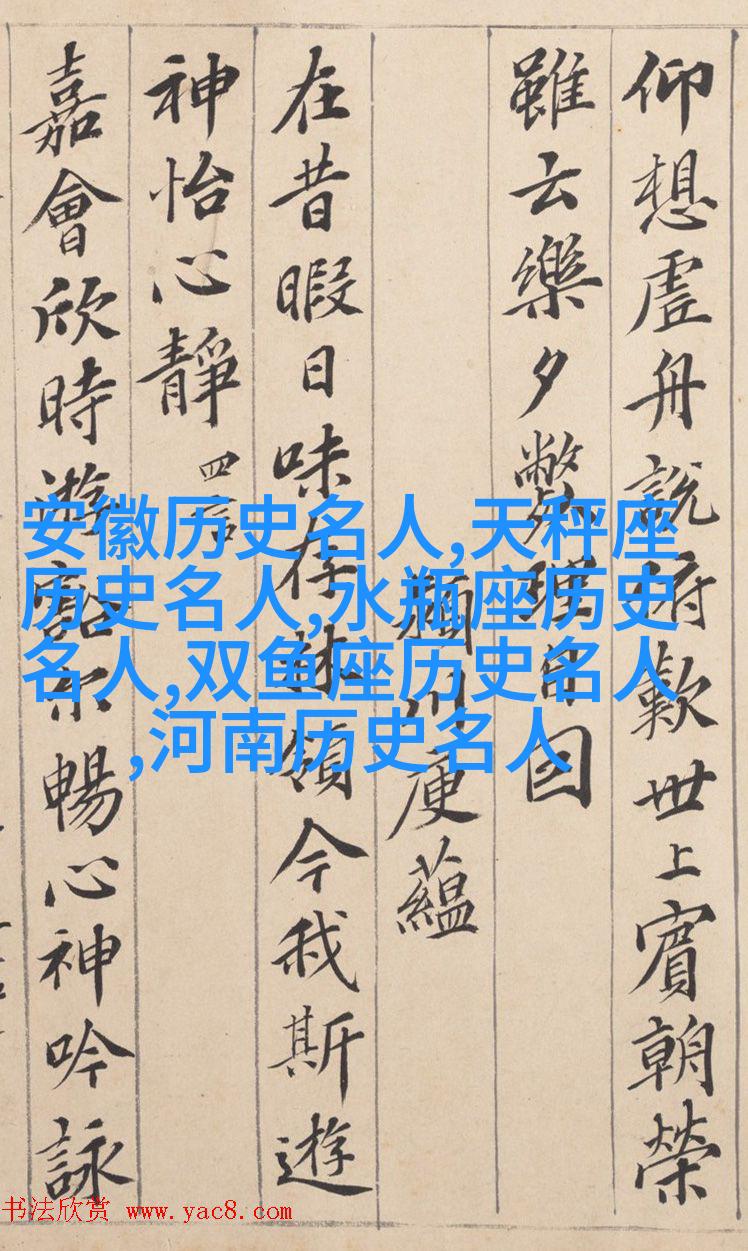 仰想虛舟說俯歎世上賓朝榮
雖云樂夕斃理自因
潁川庾蘊
在昔暇日味存林領今我斯遊
神怡心靜 四言
嘉會欣時遊豁尒暢心神吟詠
安徽历史名人,天秤座
历史名人,水瓶座历史
名人,双鱼座历史名人
,河南历史名人
书法欣赏 www.yac8.com